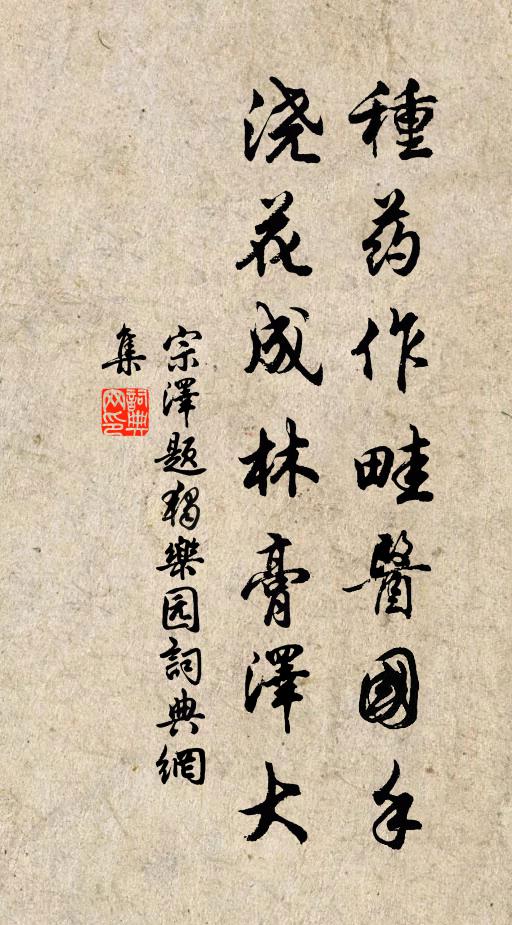 種药作畦醫國手
浇花成林膏澤大
宗澤题獨樂园詞典網
集
詞典网印